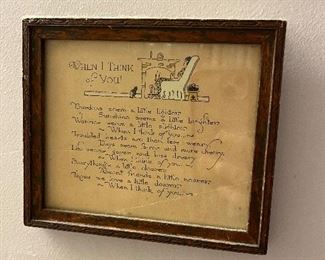 WHEN I THINK
of YOU!
Burdens seem a little lighter
Sunshine seems a little brighter
Worries weigh a little slighter
~ When I think of you.~
Troubled hearts are then less weary
Days seem brite and more cheery
Life seems gayer and less dreary
~ When I think of you ~
Everything's a little clearer
Absent friends a little nearer
Those we love a little dearer
~ When I think of you.~